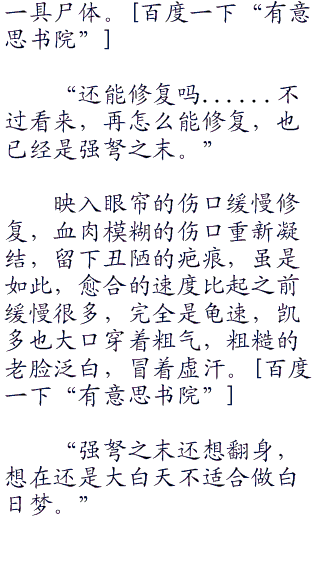 一具尸体。[百度一下“有意
思书院”]
“还能修复吗......不
过看来，再怎么能修复，也
已经是强弩之末。”
映入眼帘的伤口缓慢修
复，血肉模糊的伤口重新凝
结，留下丑陋的疤痕，虽是
如此，愈合的速度比起之前
缓慢很多，完全是龟速，凯
多也大口穿着粗气，粗糙的
老脸泛白，冒着虚汗。[百度
一下“有意思书院”]
“强弩之末还想翻身，
想在还是大白天不适合做白
日梦。”